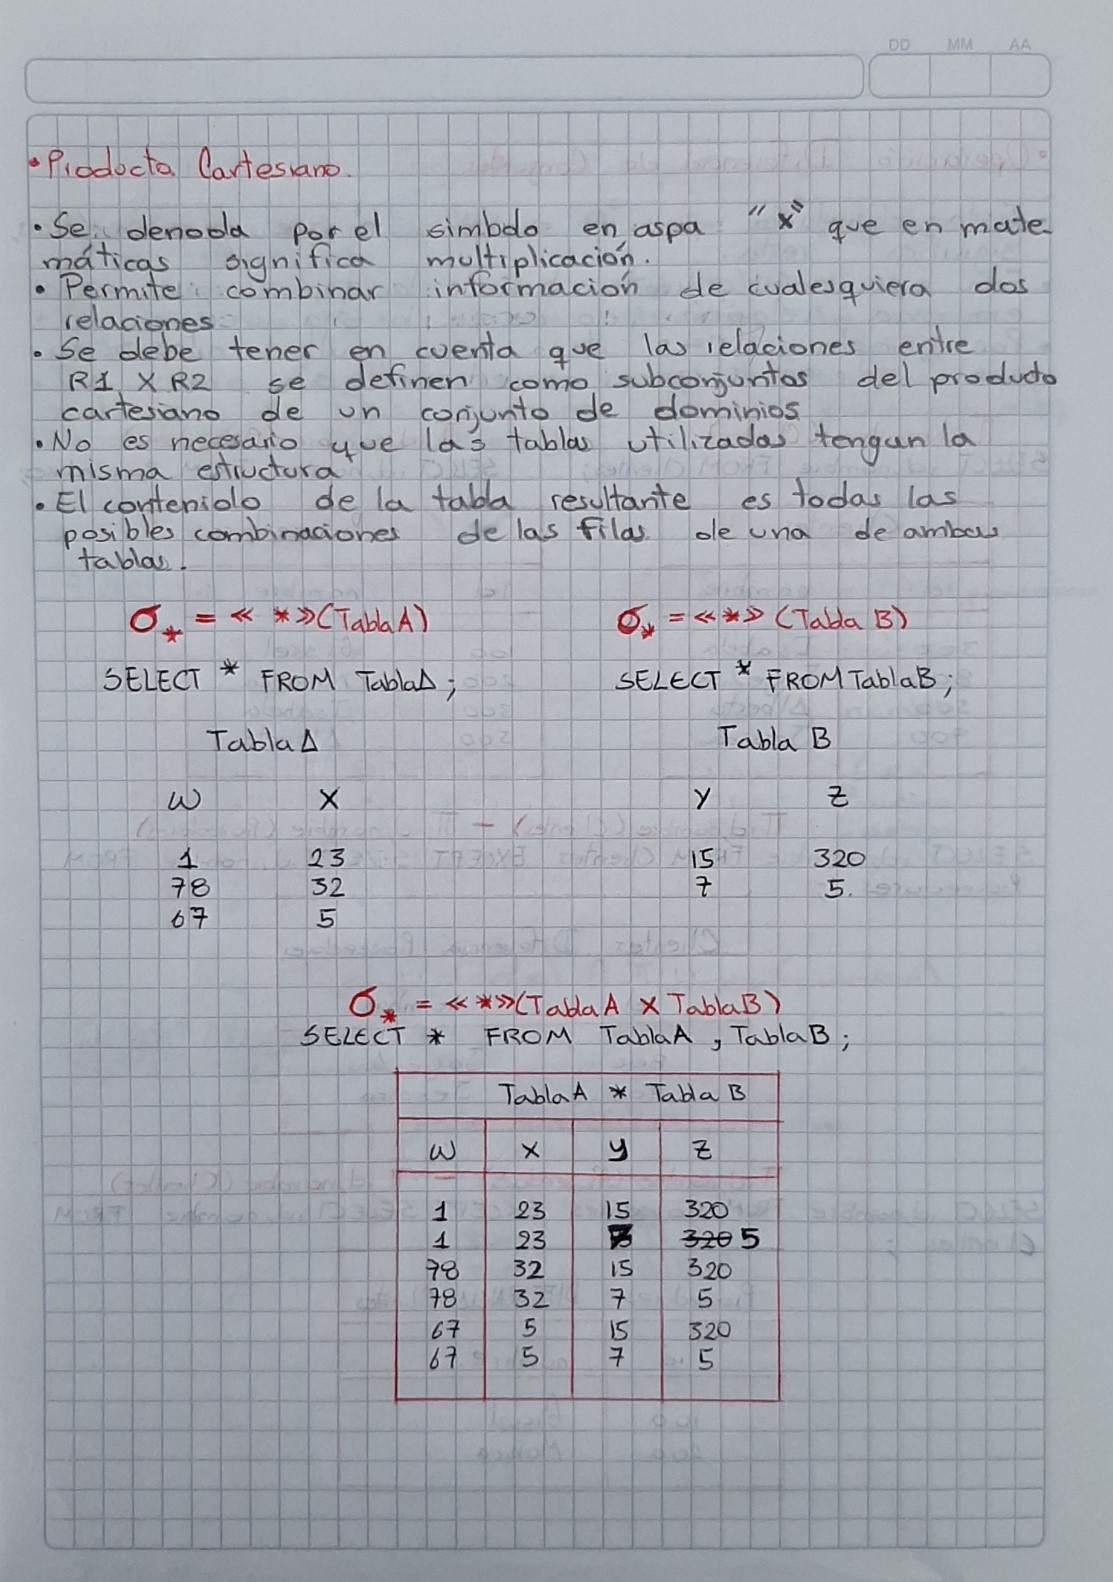 DD MM AA
• Producto Cartesiano.
• Se denoda por el simbolo en aspa "x" que en mate-
máticas significa multiplicación.
• Permite combinar información de cualesquiera dos
relaciones
• Se debe tener en cuenta que las relaciones entre
R1 X R2 se definen como subconjuntos del producto
cartesiano de un conjunto de dominios
• No es necesario que las tablas utilizadas tengan la
misma estructura
• El contenido de la tabla resultante es todas las
posibles combinaciones de las filas de una de ambas
tablas.
σ* = «*»(TablaA) σ* = «*» (Tabla B)
SELECT * FROM TablaA; SELECT * FROM TablaB;
Tabla A Tabla B
W X Y Z
1 23 15 320
78 32 7 5.
67 5
σ* = «*»(TablaA X TablaB)
SELECT * FROM TablaA, TablaB;
TablaA * Tabla B
W X Y Z
1 23 15 320
1 23 320 5
78 32 15 320
78 32 7 5
67 5 15 320
67 5 7 5